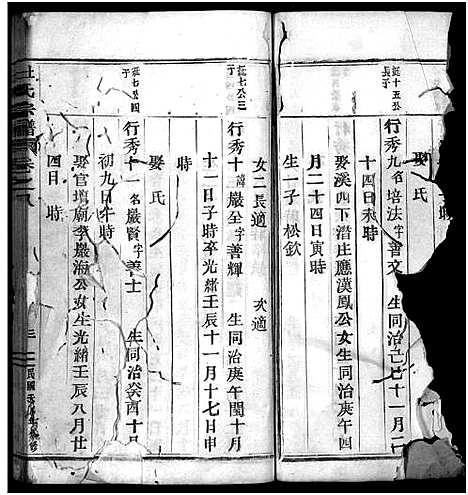 娶氏
廷十五公長子
行秀九名培法字善文 生同治己巳十一月二
十四日未時
娶溪西下潛庄應漢鳳公女生同治庚午四
月二十四日寅時
生一子 松欽
女二長適 次適
廷七公三子
行秀十諱嚴至字善輝 生同治庚午閏十月
十一日子時卒光緒壬辰十一月十七日申
時
娶氏
廷七公四子
行秀十一名嚴賢字善士 生同治癸酉十月
初九日午時
娶官壇廟李嚴海公女生光緒壬辰八月廿
四日 時
氏宗譜 卷之
三
民國